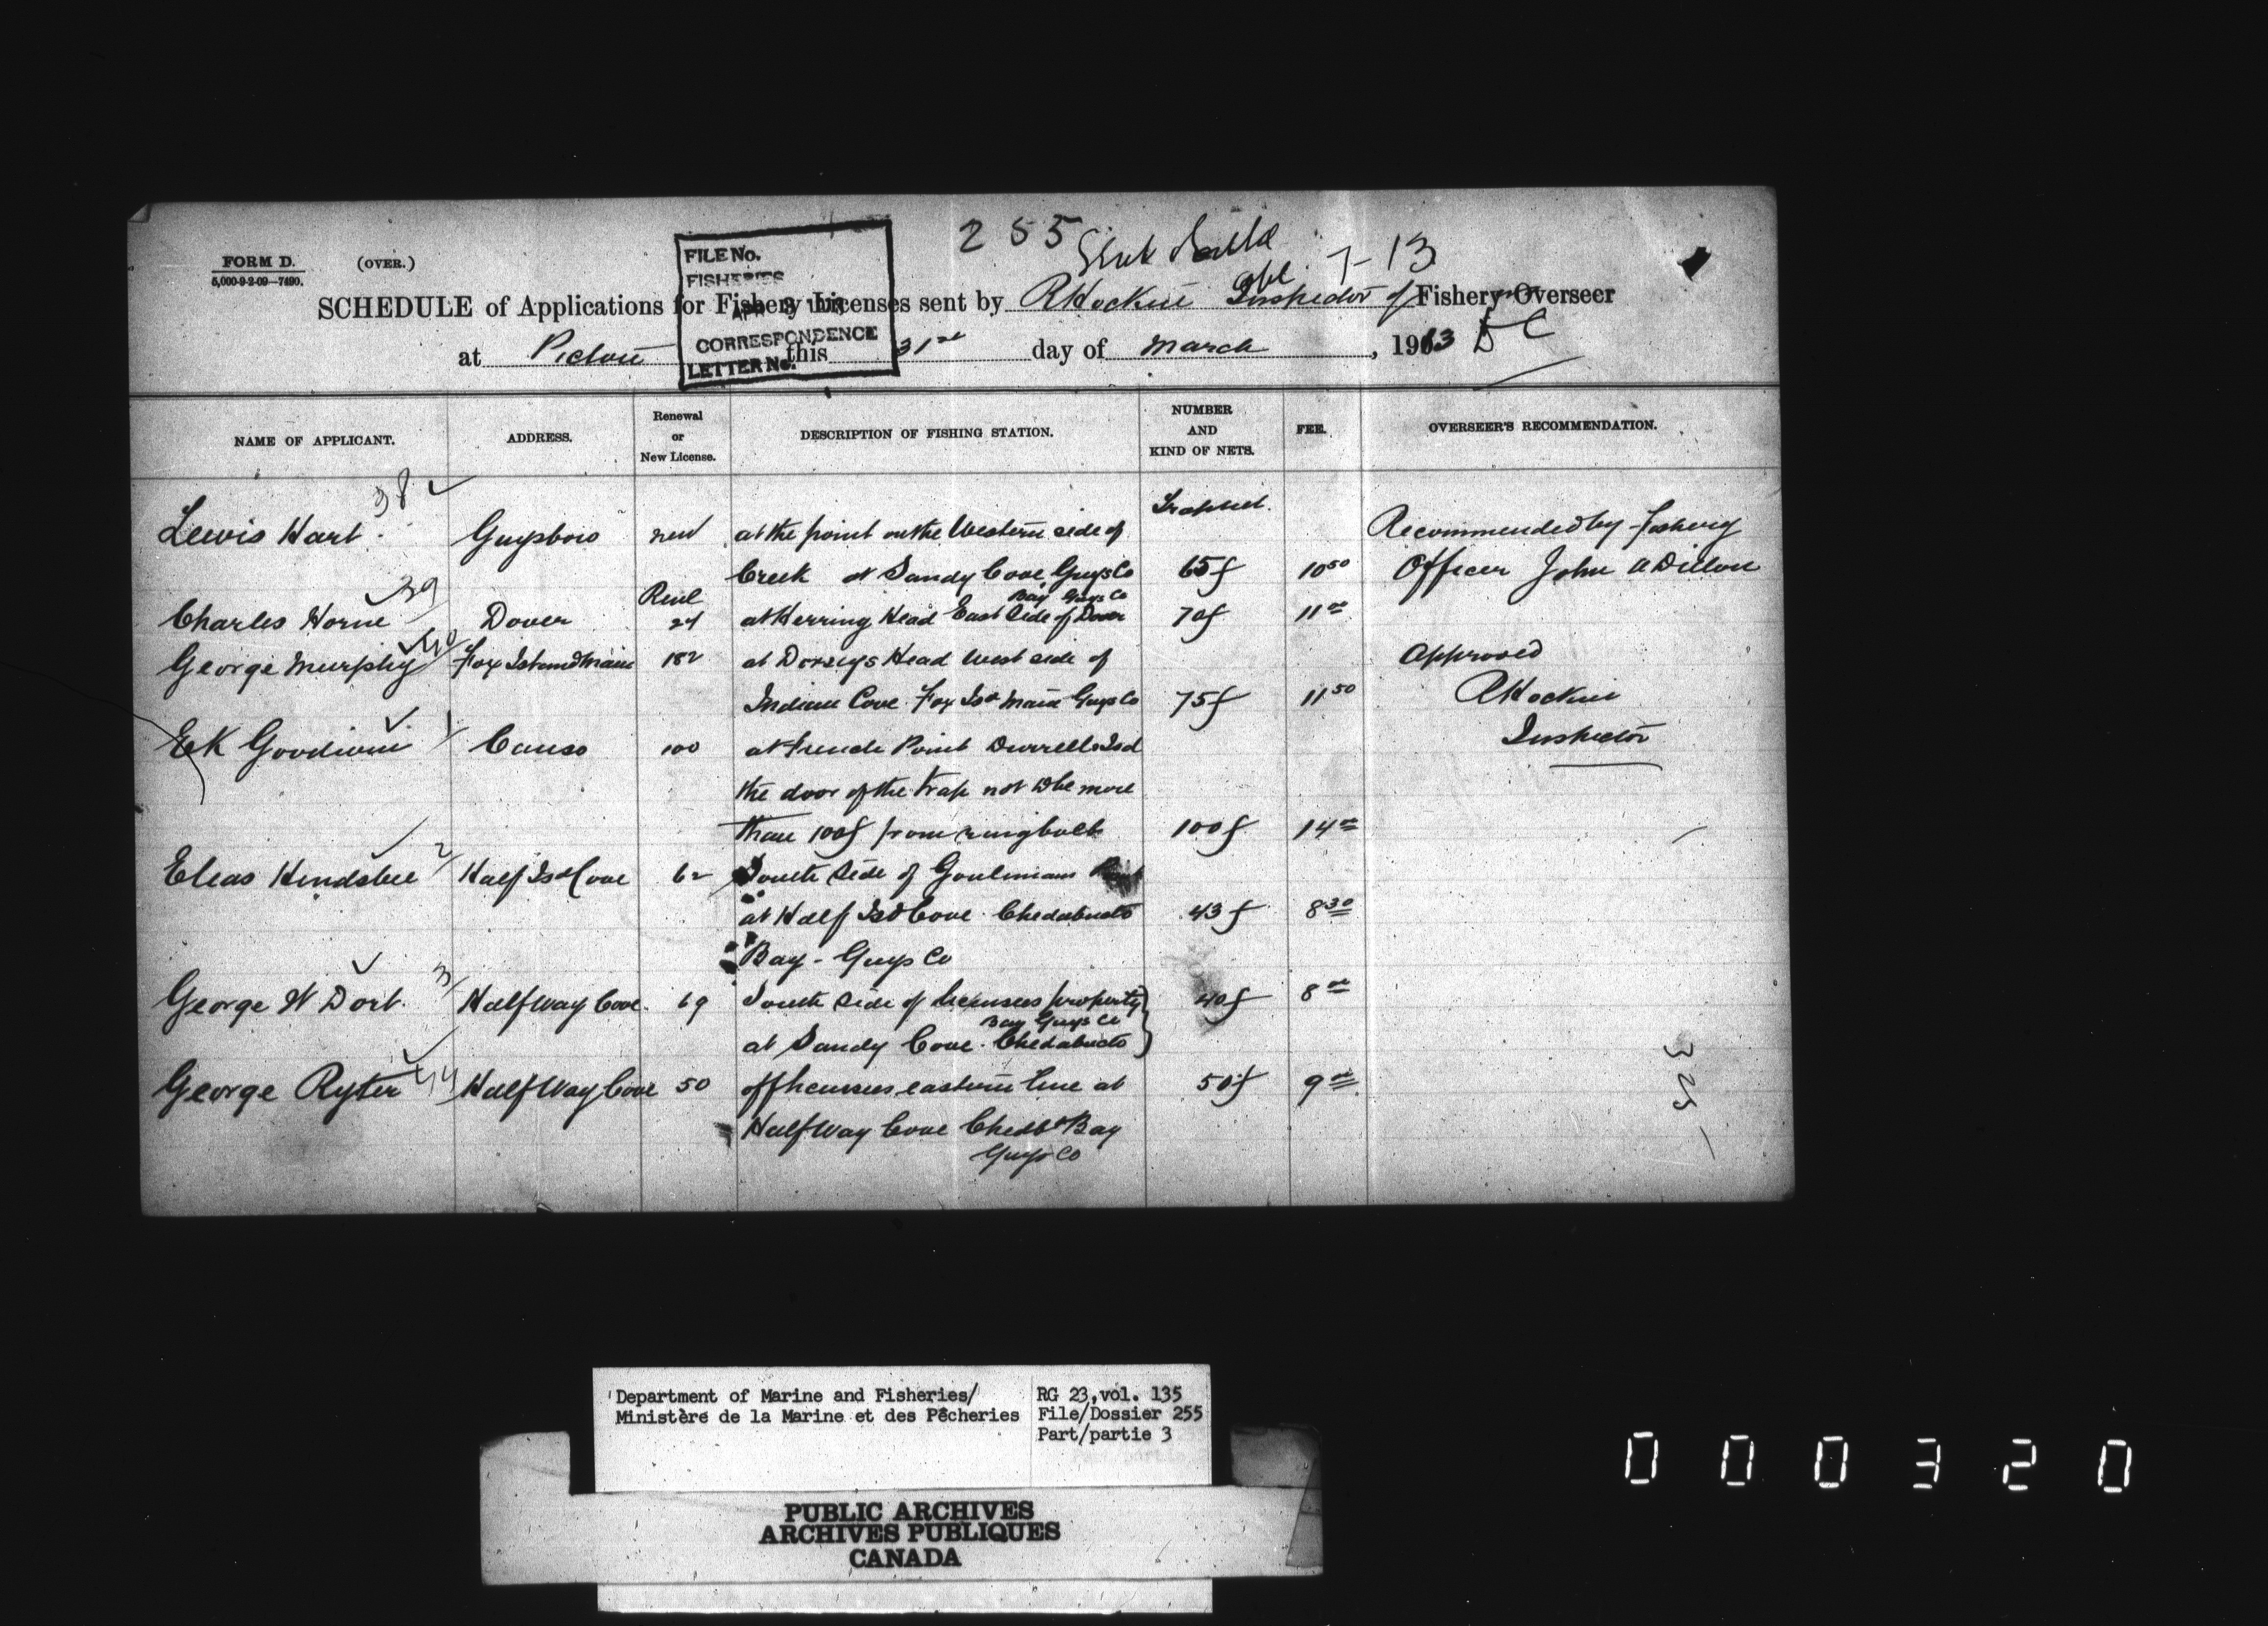 255
7-13
FORM D.
(OVER.)
5,000-9-2-09—7490.
FILE No.
FISHERIES
CORRESPONDENCE
LETTER No.
SCHEDULE of Applications for Fishery Licenses sent by RHockin Inspector of Fishery Overseer
at Pictou this 31st day of March, 1913
NAME OF APPLICANT.
ADDRESS.
Renewal
or
New License.
DESCRIPTION OF FISHING STATION.
NUMBER
AND
KIND OF NETS.
FEE.
OVERSEER'S RECOMMENDATION.
38
Trapnet.
Lewis Hart Guysboro new at the point on the Western side of Recommended by Fishery
Creek at Sandy Cove Guys Co 65f 10 50 Officer John A Dillon
39 Renl Bay Guys Co
Charles Horne Dover 24 at Herring Head East Side of Dover 70f 11 00
George Murphy 40 Fox Island Main 182 at Dorseys Head West side of Approved
Indian Cove Fox Isd Main Guys Co 75f 11 50 RHockin
EK Goodwin 1 Canso 100 at French Point Durrells Isd Inspector
the door of the trap not to be more
than 100f from ringbolt 100f 14 00
Elias Hendsbee 2 Half Isd Cove 62 South Side of Goulmans
at Half Isd Cove Chedabucto 43f 8 30
Bay - Guys Co
George W Dort. 3 Halfway Cove. 69 South side of licensees property 40f 8 00
Bay Guys Co
at Sandy Cove. Chedabucto
George Ryter 44 Half Way Cove 50 off licensees eastern line at 50f 9 00
Half Way Cove Chedbt Bay
Guys Co
325
Department of Marine and Fisheries/
Ministère de la Marine et des Pêcheries
RG 23,vol. 135
File/Dossier 255
Part/partie 3
PUBLIC ARCHIVES
ARCHIVES PUBLIQUES
CANADA
000320